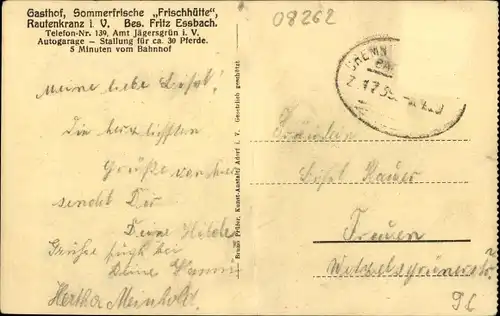 Gasthof, Sommerfrische „Frischhütte“,
Rautenkranz i. V. Bes. Fritz Essbach.
Telefon-Nr. 139, Amt Jägersgrün i. V.
Autogarage — Stallung für ca. 30 Pferde.
5 Minuten vom Bahnhof
08262
CHEMN
Meine liebe Lisbl!
Die herzlichsten
Grüße von hier
sendet Dir
Deine Hilde
Grüße fügt bei
Deine
Hertha Meinhold.
Bruno Felder, Kunst-Anstalt, Adorf i. V. Gesetzlich geschützt
Fräulein
Lisbl
Treuen
96